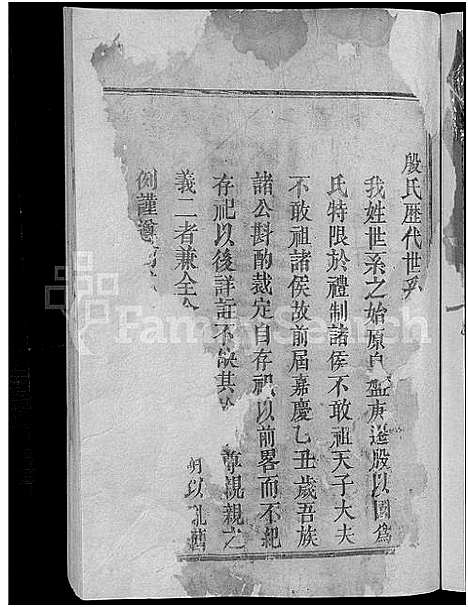 殷氏歷代世系
我姓世系之始原自盤庚遷殷以國為
氏特限於禮制諸侯不敢祖天子大夫
不敢祖諸侯故前屆嘉慶乙丑歲吾族
諸公斟酌裁定自存祀以前畧而不紀
存祀以後詳註不缺其 尊親親之
義二者兼全
例謹遵
FamilySearch